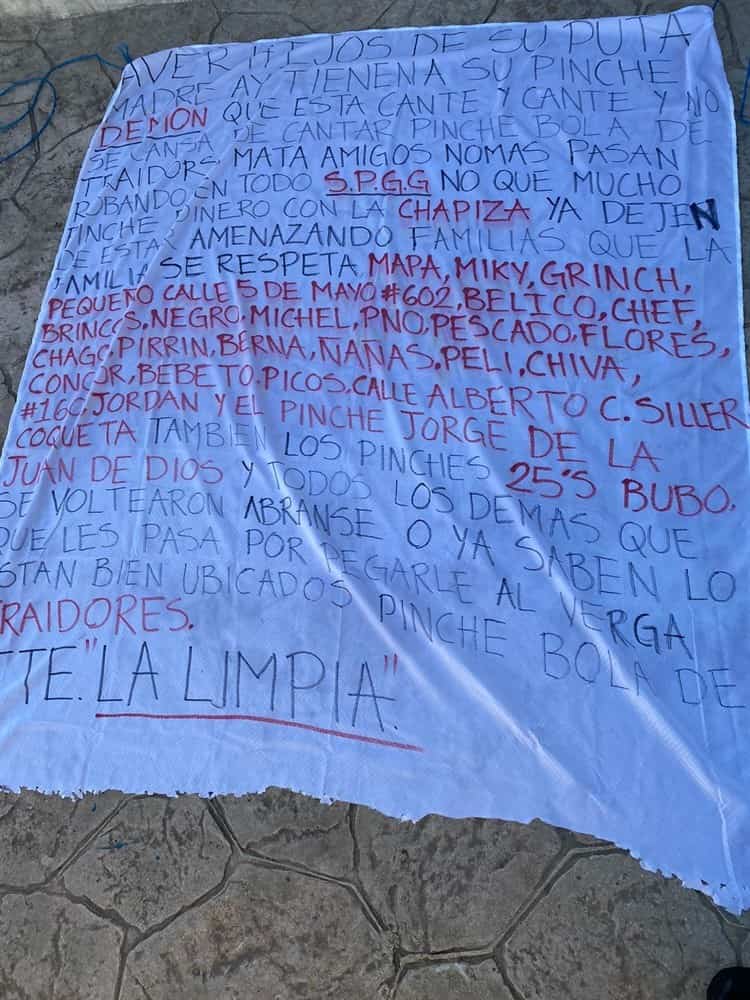 AVER HIJOS DE SU PUTA
MADRE AY TIENEN A SU PINCHE
DEMON QUE ESTA CANTE Y CANTE Y NO
SE CANSA DE CANTAR PINCHE BOLA DE
TRAIDORS MATA AMIGOS NOMAS PASAN
ROBANDO EN TODO S.P.G.G NO QUE MUCHO
PINCHE DINERO CON LA CHAPIZA YA DEJEN
DE ESTAR AMENAZANDO FAMILIAS QUE LA
FAMILIA SE RESPETA MAPA, MIKY, GRINCH,
PEQUEÑO CALLE 5 DE MAYO #602, BELICO, CHEF,
BRINCOS, NEGRO, MICHEL, PNO, PESCADO, FLORES,
CHAGO, PIRRIN, BERNA, ÑAÑAS, PELI, CHIVA,
CONCOR, BEBETO, PICOS, CALLE ALBERTO C. SILLER
#160, JORDAN Y EL PINCHE JORGE DE LA
COQUETA TAMBIEN LOS PINCHES 25'S BUBO.
JUAN DE DIOS Y TODOS LOS DEMAS QUE
SE VOLTEARON ABRANSE O YA SABEN LO
QUE LES PASA POR PEGARLE AL VERGA
STAN BIEN UBICADOS PINCHE BOLA DE
RAIDORES.
TTE. "LA LIMPIA".